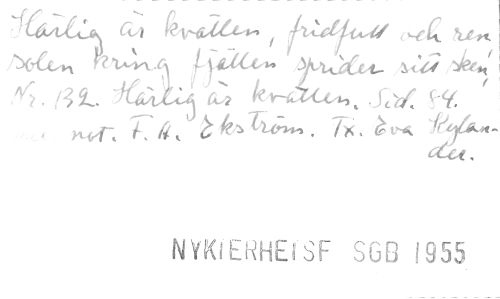 Härlig är kvällen, fridfull och ren,
solen kring fjällen sprider sitt sken,
Nr. 132. Härlig är kvällen. Sid. 84.
not. F. A. Ekström. Tx. Eva Kylan-
der.
NYKIERHEISF SGB 1955